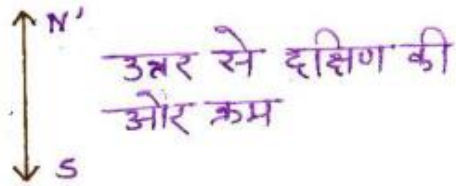 N'
उत्तर से दक्षिण की
ओर क्रम
S